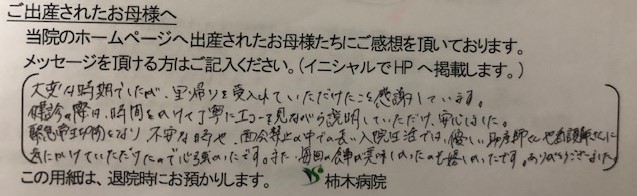 ご出産されたお母様へ
当院のホームページへ出産されたお母様たちにご感想を頂いております。
メッセージを頂ける方はご記入ください。(イニシャルでHPへ掲載します。)
大変な時期でしたが、里帰りを受入れていただけたことを感謝しています。
健診の際は、時間をかけて丁寧にエコーを見ながら説明していただけ、安心しました。
緊急帝王切開となり不安な時や、面会禁止の中での長い入院生活では、優しい助産師さんや看護師さんに
気にかけていただけたので心強かったです。また、毎回の食事が美味しかったのも嬉しかったです。ありがとうございました。
この用紙は、退院時にお預かりします。
柿木病院